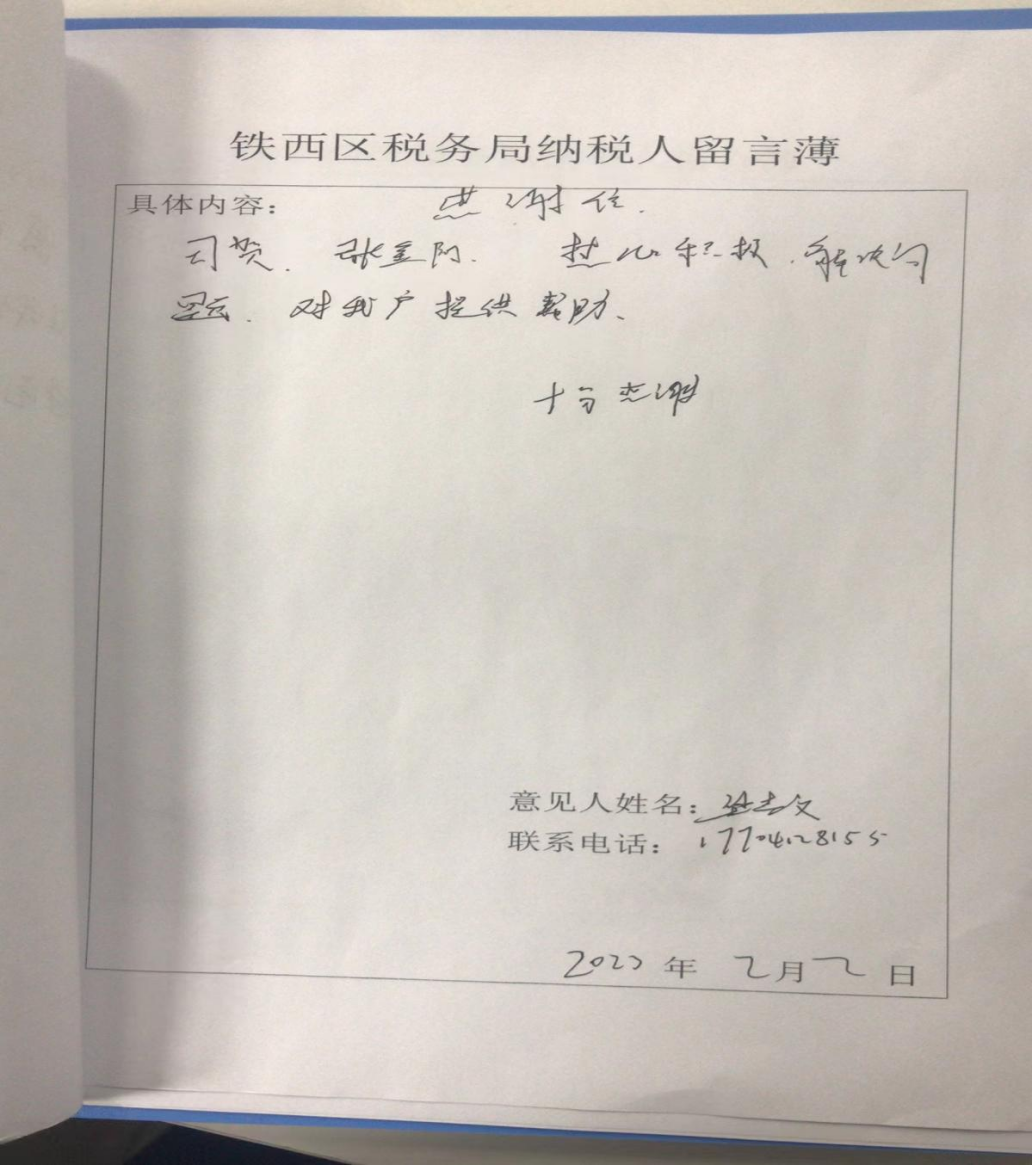 铁西区税务局纳税人留言薄
具体内容： 感谢信.
司贺. 张金阳. 热心积极. 解决问
题. 对我户提供帮助、
十分感谢
意见人姓名：志文
联系电话： 17704128155
2023 年 2 月 2 日